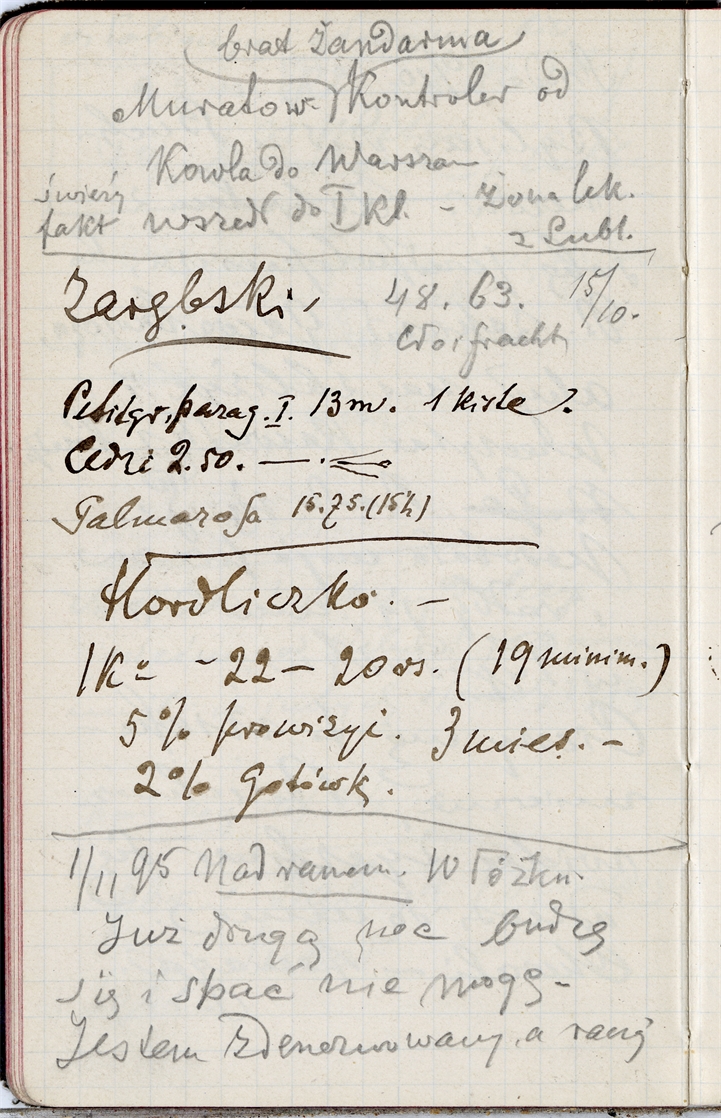 brat Żandarma
Muratow. Kontroler od
Kowla do Warszaw
świeży
fakt wszedł do I kl. – Żona lek.
z Lubl.
Zarębski. 48. 63. 15/10.
Cło i fracht
Petitgr. parag. I. 13 m. 1 Kiste.
Cedre 2.50. —
Palmarosa 15.75. (15½)
Hordliczko. —
1 K° - 22 — 20 rs. (19 minim.)
5% prowizyi. 3 mies. –
2% Gotówką.
1/11 95 Nad ranem. W łóżku.
Już drugą noc budzę
się i spać nie mogę –
Jestem zdenerwowany, a raczej